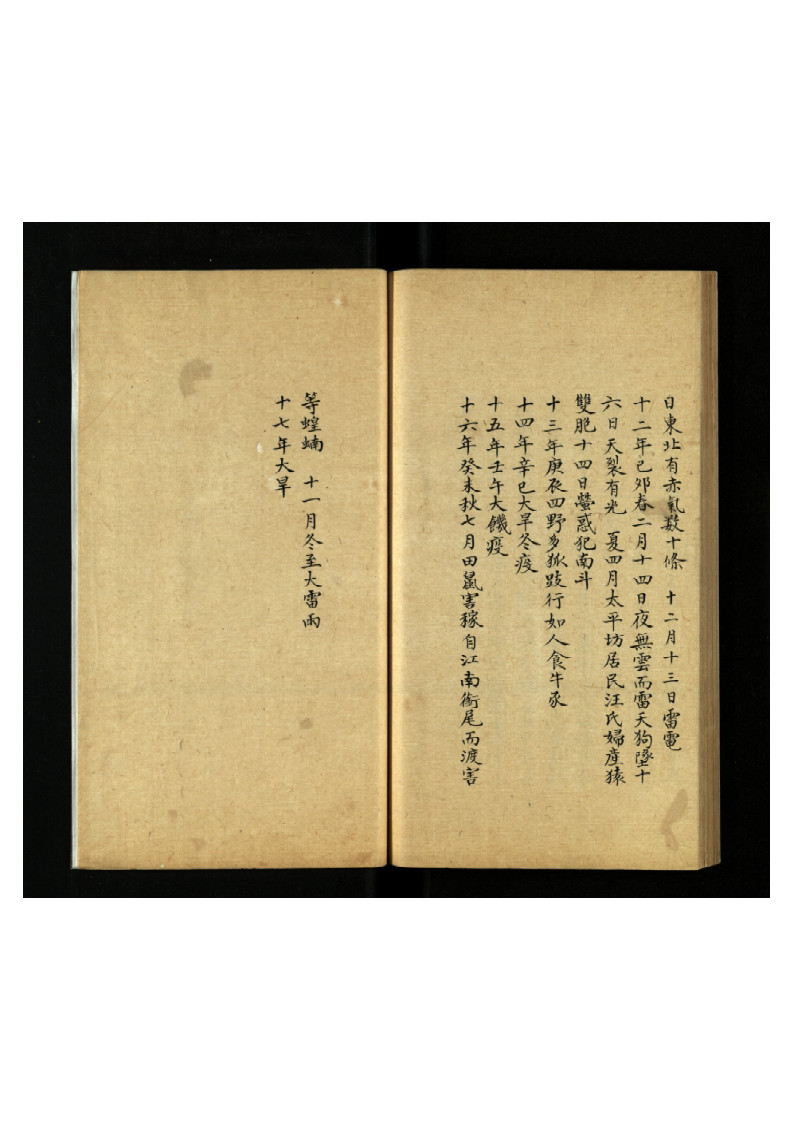 日東北有赤氣数十條　十二月十三日雷電
十二年己夘春二月十四日夜無雲而雷天狗墜十
六日天裂有光　夏四月太平坊居民汪氏婦產猿
雙胞十四日螢惑犯南斗
十三年庚辰四野多狐跂行如人食牛豕
十四年辛巳大旱冬疫
十五年壬午大饑疫
十六年癸未秋七月田鼠害稼自江南銜尾而渡害
等蝗蝻　十一月冬至大雷雨
十七年大旱